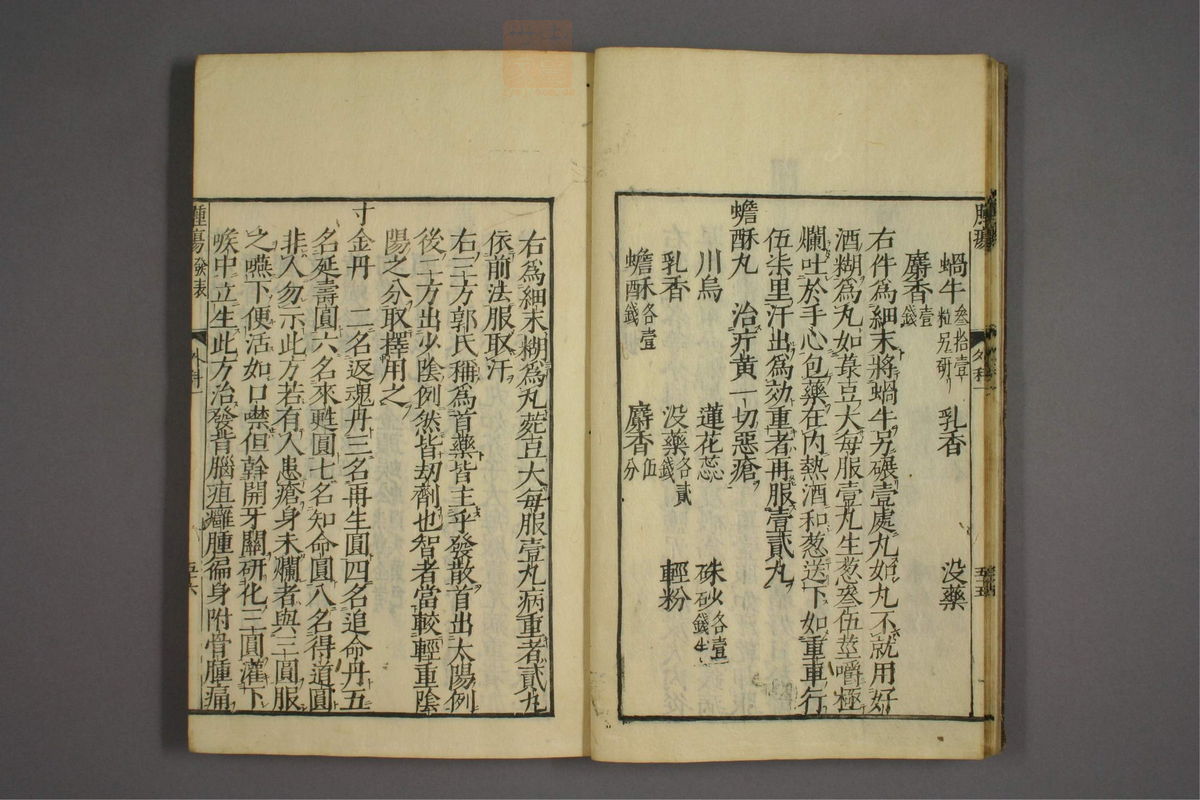 腫瘍
外科一
五十五
蝸牛 叁拾壹粒另研 乳香 没藥
麝香 壹錢
右件為細末將蝸牛另碾壹處丸如丸不就用好
酒糊為丸如菉豆大每服壹丸生葱叄伍莖嚼極
爛吐於手心包藥在內熱酒和葱送下如重車行
伍柒里汗出為効重者再服壹貳丸
蟾酥丸 治疔黄一切惡瘡
川烏 蓮花蕊 硃砂 各壹錢生
乳香 没藥 各貳錢 輕粉
蟾酥 各壹錢 麝香 伍分
右為細末糊為丸菀豆大每服壹丸病重者貳丸
依前法服取汗
右三方郭氏稱為首藥皆主乎發散首出太陽例
後二方出少陰例然皆刼劑也智者當較輕重陰
陽之分取擇用之
寸金丹 二名返魂丹三名再生圓四名追命丹五
名延壽圓六名來甦圓七名知命圓八名得道圓
非人勿示此方若有人患瘡身未爛者與三圓服
之嚥下便活如口噤但斡開牙關研化三圓灌下
喉中立生此方治發背腦疽癰腫徧身附骨腫痛
腫瘍 發表
外科一
五十六